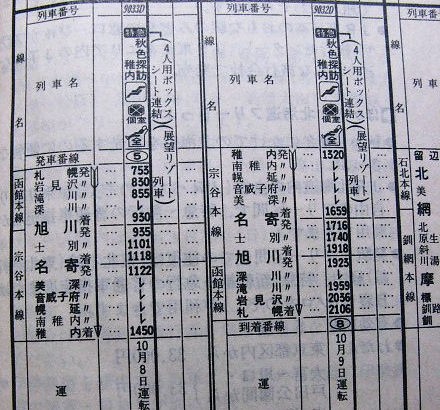 列車番号
線名
列車名
9033D
特急
秋色探訪
稚内
4人用ボックス
シート連結
(展望リゾート
列車)
個室
全
発車番線 ⑤
函館本線
札幌発 755
岩見沢〃 830
滝川〃 855
深川〃 レ
旭川着 930
宗谷本線
発 935
士別〃 1101
名寄着 1118
発 1122
美深〃 レ
音威子府〃 レ
幌延〃 レ
南稚内〃 レ
稚内着 1450
運
10月8日運転
列車番号
線名
列車名
9032D
特急
秋色探訪
稚内
4人用ボックス
シート連結
(展望リゾート
列車)
個室
全
宗谷本線
稚内発 1320
南稚内〃 レ
幌延〃 レ
音威子府〃 レ
美深〃 レ
名寄着 1659
発 1716
士別〃 1740
旭川着 1918
函館本線
発 1923
深川〃 レ
滝川〃 1959
岩見沢〃 2036
札幌着 2106
到着番線 ⑧
運
10月9日運転
石北本線
釧網本線